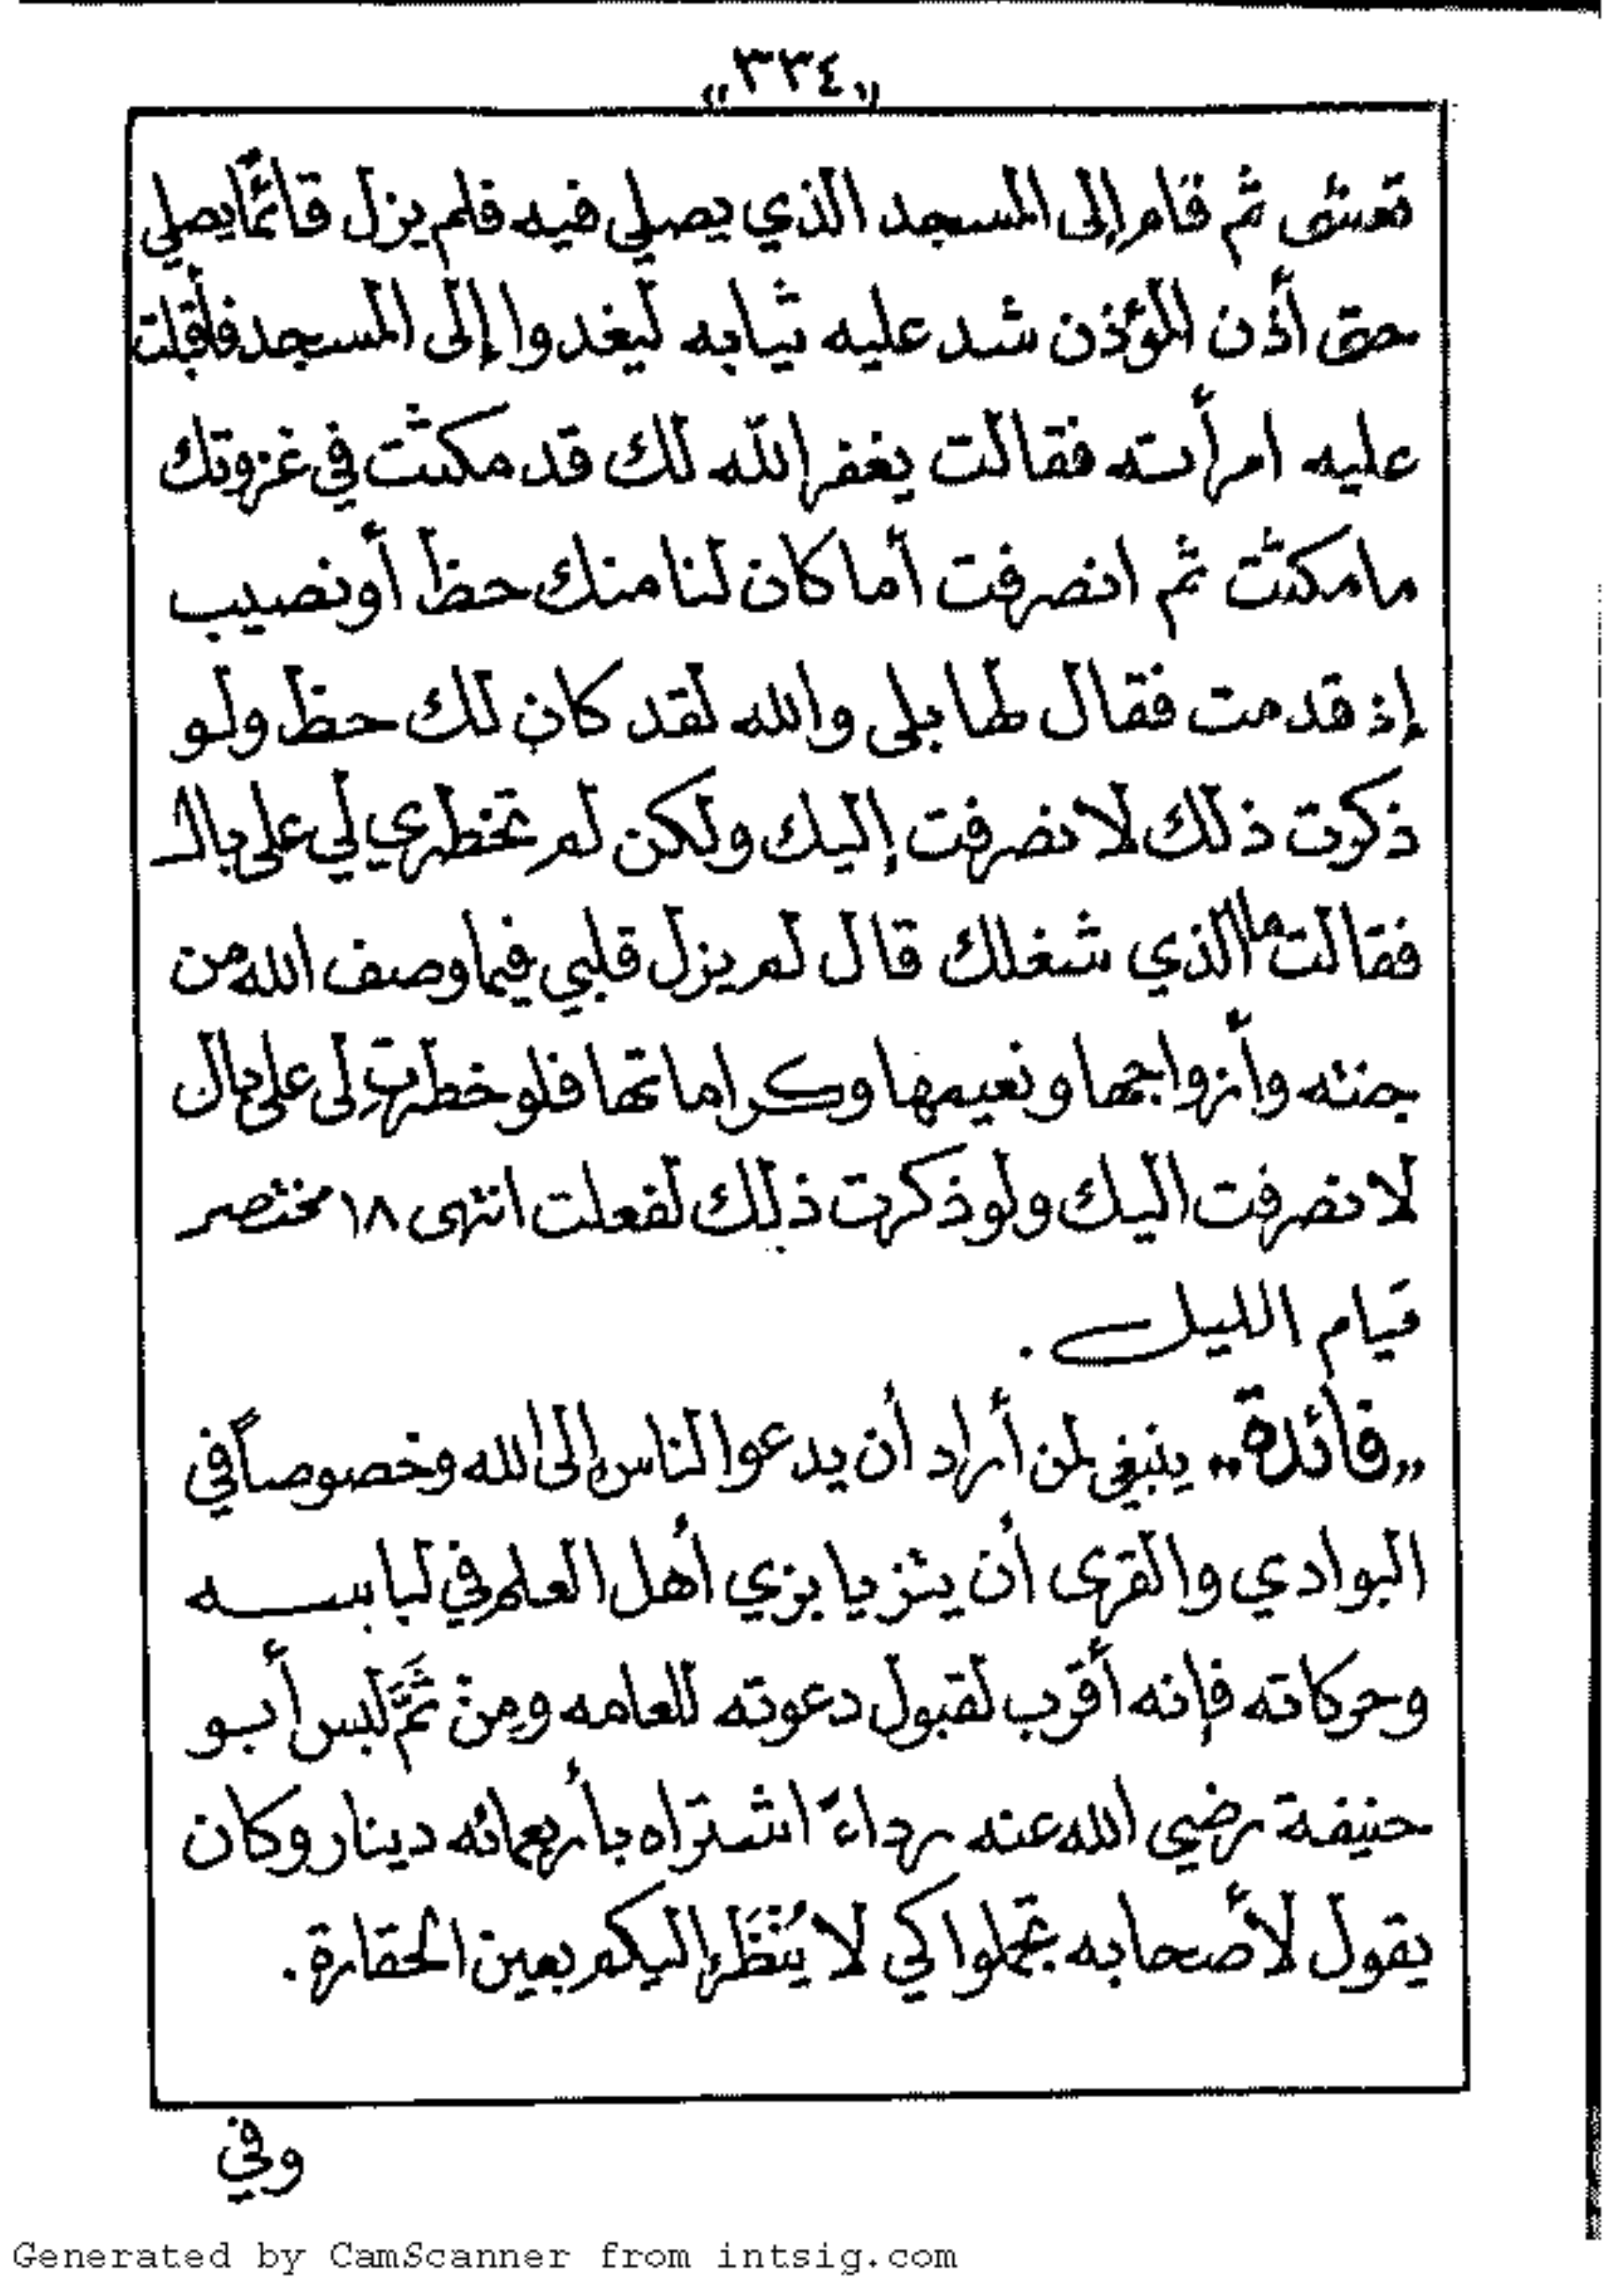 «٣٣٤»
تعشى ثم قام إلى المسجد الذي يصلي فيه فلم يزل قائمًا يصلي
حتى أذن المؤذن شد عليه ثيابه ليغدوا إلى المسجد فأقبلت
عليه امرأته فقالت يغفر الله لك قد مكثت في غزوتك
ما مكثت ثم انصرفت أما كان لنا منك حظ أو نصيب
إذ قدمت فقال لها بلى والله لقد كان لك حظ ولو
ذكرت ذلك لانصرفت إليك ولكن لم تخطري لي على بال
فقالت ما الذي شغلك قال لم يزل قلبي فيما وصف الله من
جنته وأزواجها ونعيمها وكراماتها فلو خطرتِ لى على بال
لانصرفت اليك ولو ذكرت ذلك لفعلت انتهى ١٨ مختصر
قيام الليل .
,,فائدة,, ينبغي لمن أراد أن يدعوا الناس إلى الله وخصوصاً في
البوادي والقرى أن يتزيا بزي أهل العلم في لباسه
وحركاته فإنه أقرب لقبول دعوته للعامه ومن ثَمَّ لبس أبو
حنيفة رضي الله عنه رداءً اشتراه بأربعمائه دينار وكان
يقول لأصحابه تجملوا كي لا يُنْظَر اليكم بعين الحقارة .
وفي
Generated by CamScanner from intsig.com